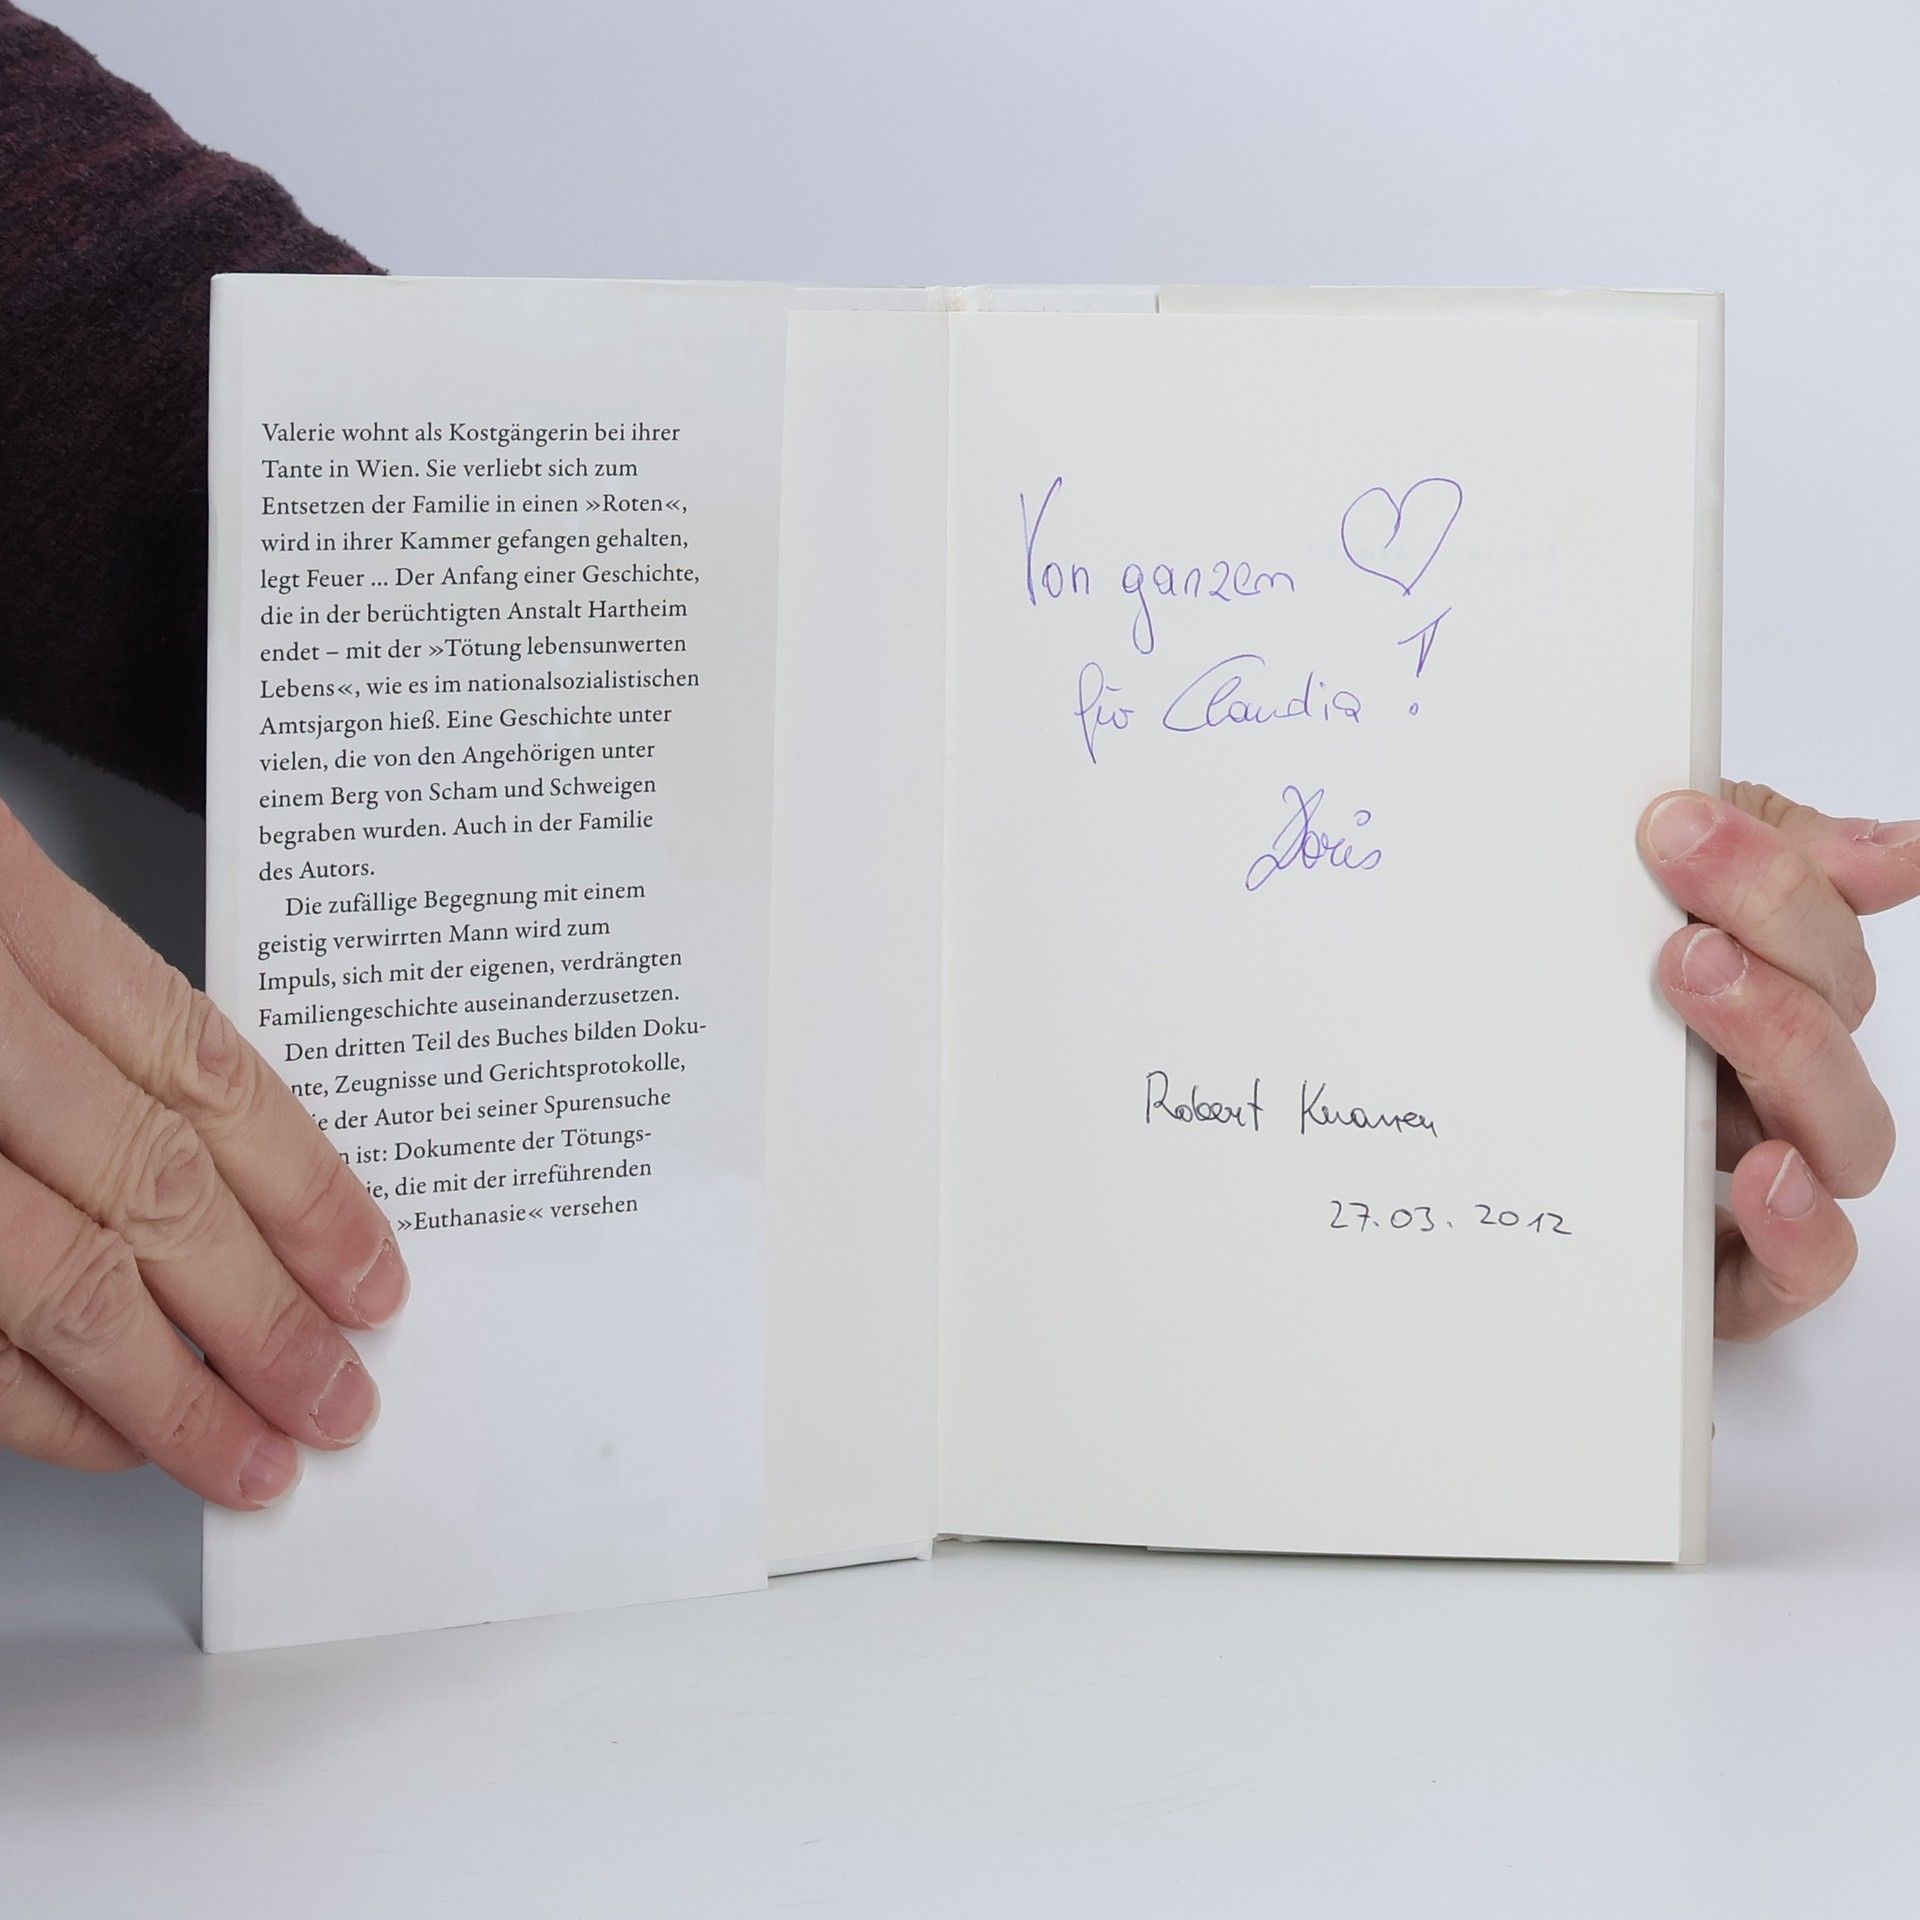 Valerie wohnt als Kostgängerin bei ihrer
Tante in Wien. Sie verliebt sich zum
Entsetzen der Familie in einen »Roten«,
wird in ihrer Kammer gefangen gehalten,
legt Feuer ... Der Anfang einer Geschichte,
die in der berüchtigten Anstalt Hartheim
endet – mit der »Tötung lebensunwerten
Lebens«, wie es im nationalsozialistischen
Amtsjargon hieß. Eine Geschichte unter
vielen, die von den Angehörigen unter
einem Berg von Scham und Schweigen
begraben wurden. Auch in der Familie
des Autors.
Die zufällige Begegnung mit einem
geistig verwirrten Mann wird zum
Impuls, sich mit der eigenen, verdrängten
Familiengeschichte auseinanderzusetzen.
Den dritten Teil des Buches bilden Doku-
nte, Zeugnisse und Gerichtsprotokolle,
der Autor bei seiner Spurensuche
ist: Dokumente der Tötungs-
die mit der irreführenden
»Euthanasie« versehen
Von ganzem
für Claudia!
Doris
Robert
27.03.2012